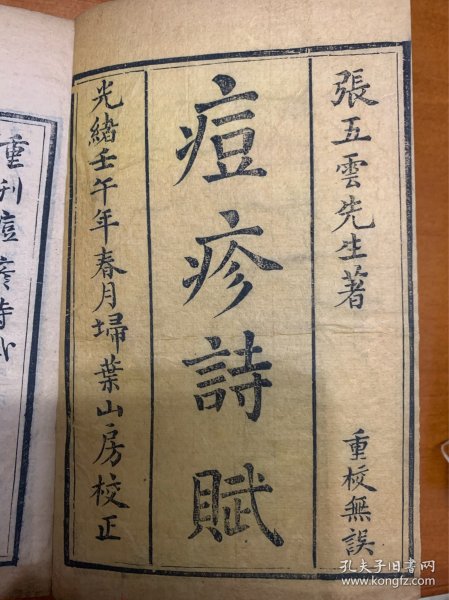 張五雲先生著
重校無誤
痘疹詩賦
光緒壬午年春月埽葉山房校正
重刊痘疹詩
孔夫子旧书网
kongfz.com